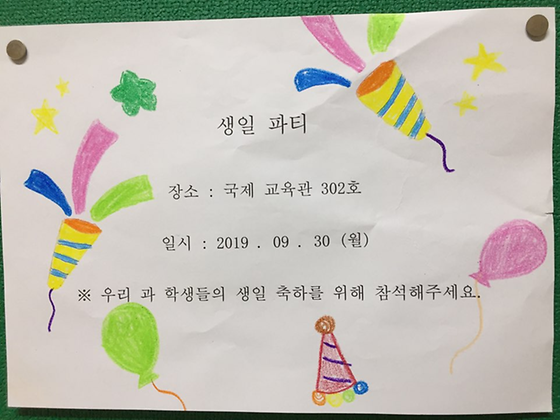 생일 파티
장소 : 국제 교육관 302호
일시 : 2019 . 09 . 30 (월)
※ 우리 과 학생들의 생일 축하를 위해 참석해주세요.